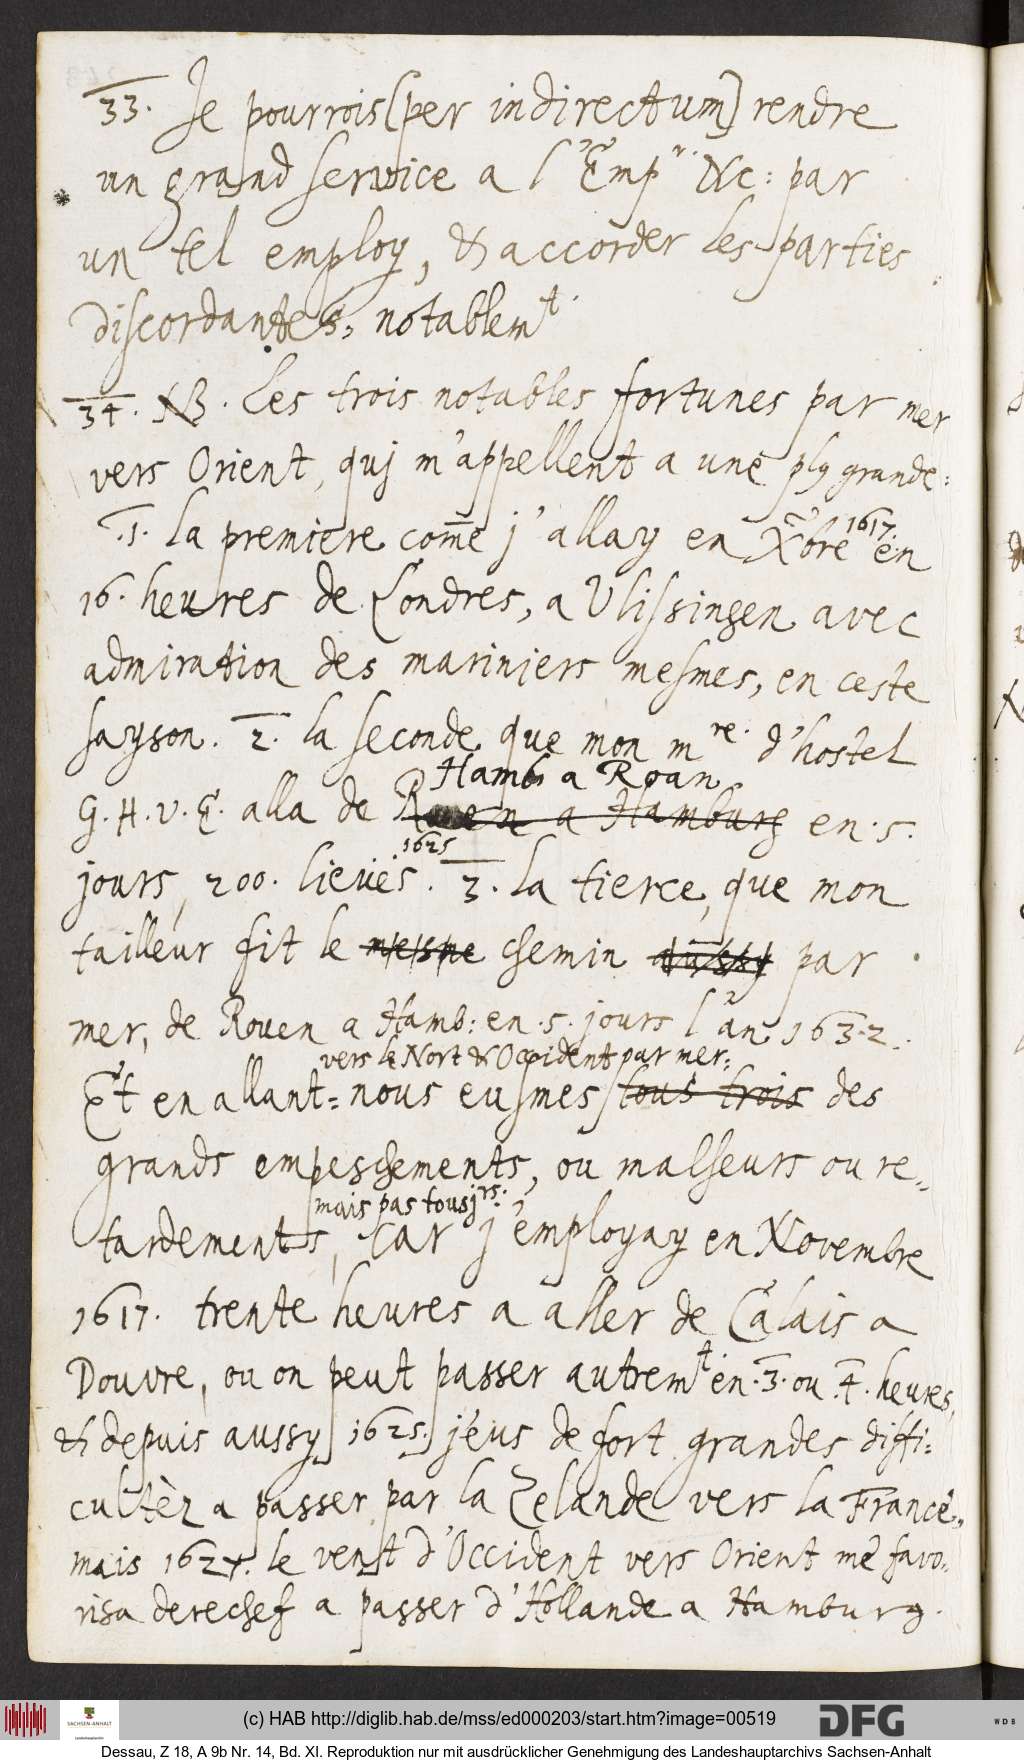 33. Je pourrois [per indirectum] rendre
un grand service a l'Emp.r &c: par
un tel employ, & accorder les parties
discordantes, notablem.t
34. NB. Les trois notables fortunes par mer
vers Orient, quj m'appellent a une plus grande:
1. la premiere com̄e j'allay en Xbre 1617. en
16. heures de Londres, a Vlissingen avec
admiration des mariniers mesmes, en ceste
sayson. 2. la seconde que mon m.re d'hostel
Hamb. a Roan
G. H. v. E. alla de Rouen a Hamburg en .5.
1625
jours, 200. lieuës. 3. la tierce, que mon
tailleur fit le mesme chemin aussy par
mer, de Rouen a Hamb: en .5. jours l'an 1632.
vers le Nort & Occident par mer:
Et en allant= nous eusmes tous trois des
grands empeschements, ou malheurs ou re=
mais pas tousj.rs:
tardements, Car j'employay en Novembre
1617. trente heures a aller de Calais a
Douvre, ou on peut passer autrem.t en .3. ou .4. heures,
& depuis aussy 1625. j'eus de fort grandes diffi=
cultèz a passer par la Zelande vers la France,
mais 1627. le vent d'Occident vers Orient me favo=
risa derechef a passer d'Hollande a Hamburg.
SACHSEN-ANHALT
(c) HAB http://diglib.hab.de/mss/ed000203/start.htm?image=00519
DFG
WDB
Dessau, Z 18, A 9b Nr. 14, Bd. XI. Reproduktion nur mit ausdrücklicher Genehmigung des Landeshauptarchivs Sachsen-Anhalt